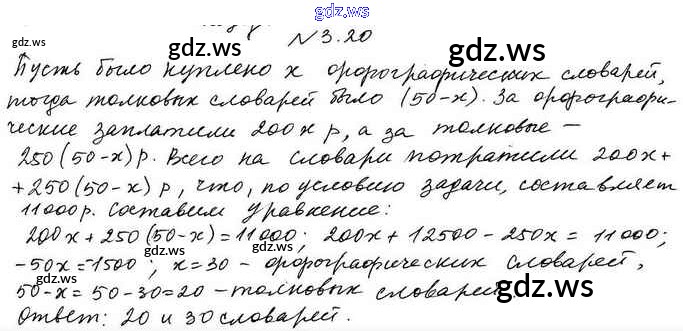 gdz.ws
№3.20
Пусть было куплено x орфографических словарей,
тогда толковых словарей было (50-x). За орфографи-
ческие заплатили 200x р, а за толковые -
250(50-x) р. Всего на словари потратили 200x+
+250(50-x) р, что, по условию задачи, составляет
11000р. Составим уравнение:
200x+250(50-x)=11000; 200x+12500-250x=11000;
-50x=-1500; x=30 - орфографических словарей,
50-x=50-30=20 - толковых словарей.
Ответ: 20 и 30 словарей.
gdz.ws
gdz.ws
gdz.ws
gdz.ws
gdz.ws
gdz.ws
gdz.ws
gdz.ws
gdz.ws
gdz.ws
gdz.ws